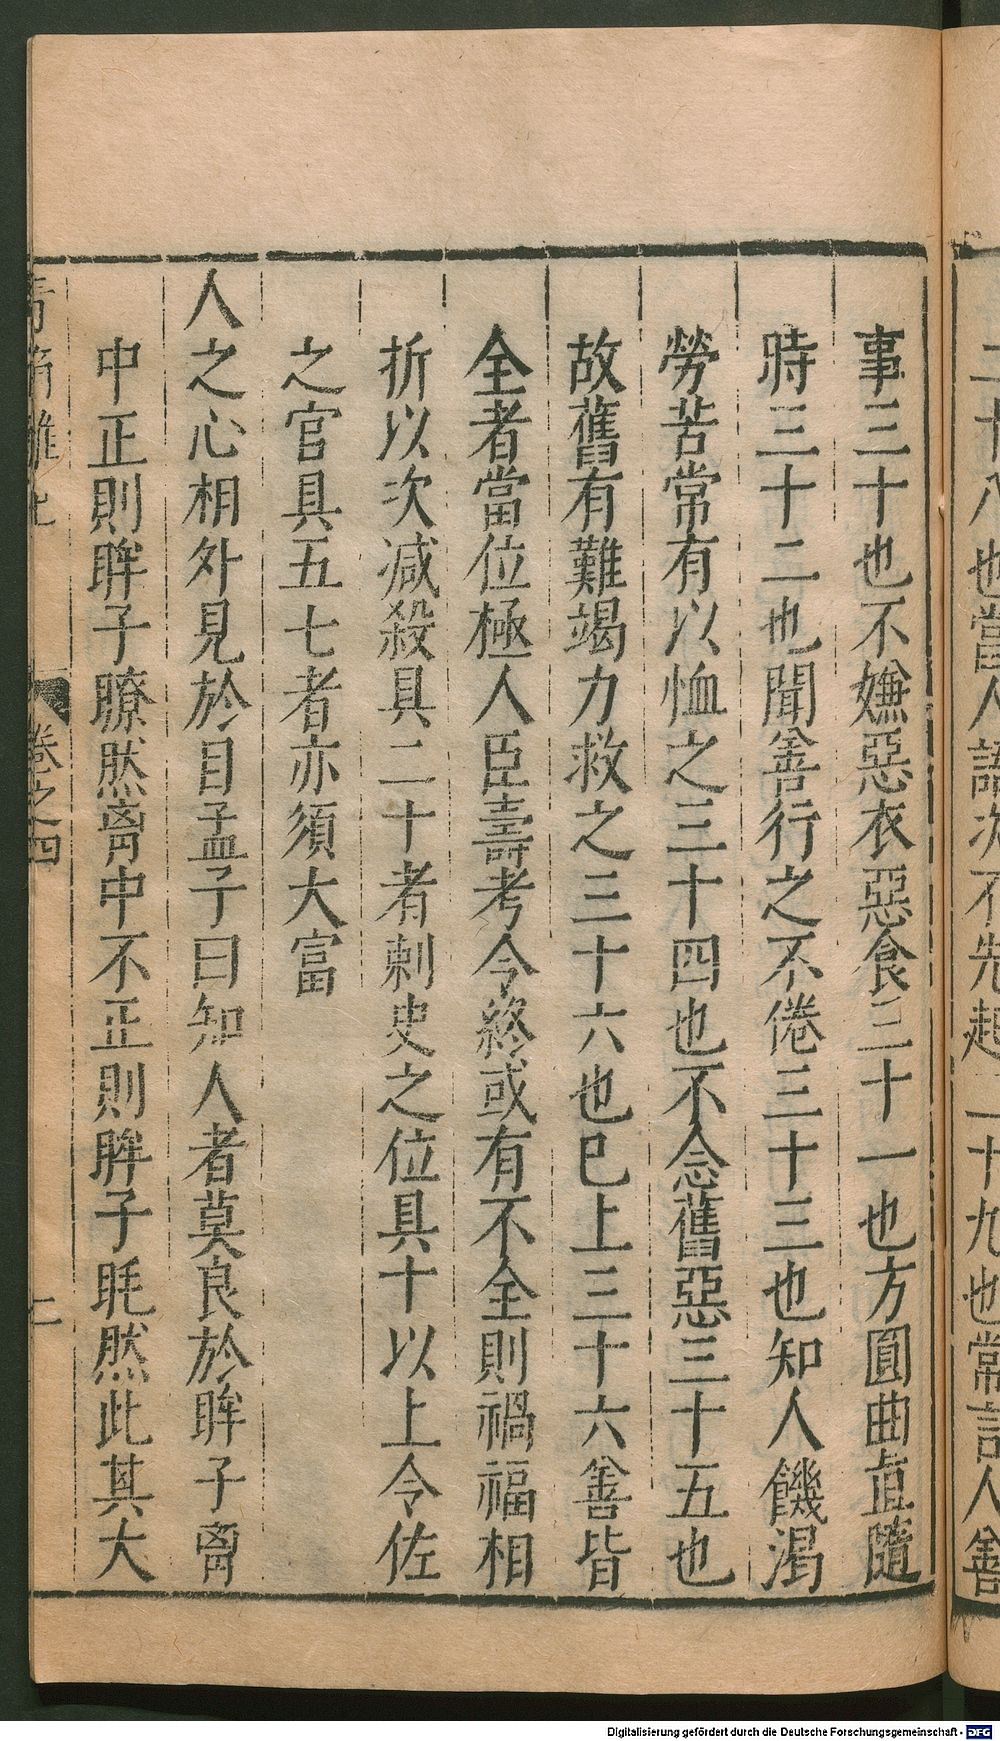 事三十也不嫌惡衣惡食三十一也方圓曲直隨
時三十二也聞善行之不倦三十三也知人饑渴
勞苦常有以恤之三十四也不念舊惡三十五也
故舊有難竭力救之三十六也巳上三十六善皆
全者當位極人臣壽考令終或有不全則禍福相
折以次减殺具二十者刺史之位具十以上令佐
之官具五七者亦須大富
人之心相外見於目孟子曰知人者莫良於眸子胷
中正則眸子瞭然胷中不正則眸子眊然此其大
卷之四
二
二十八也當人語次不先起二十九也常言人善
Digitalisierung gefördert durch die Deutsche Forschungsgemeinschaft - DFG